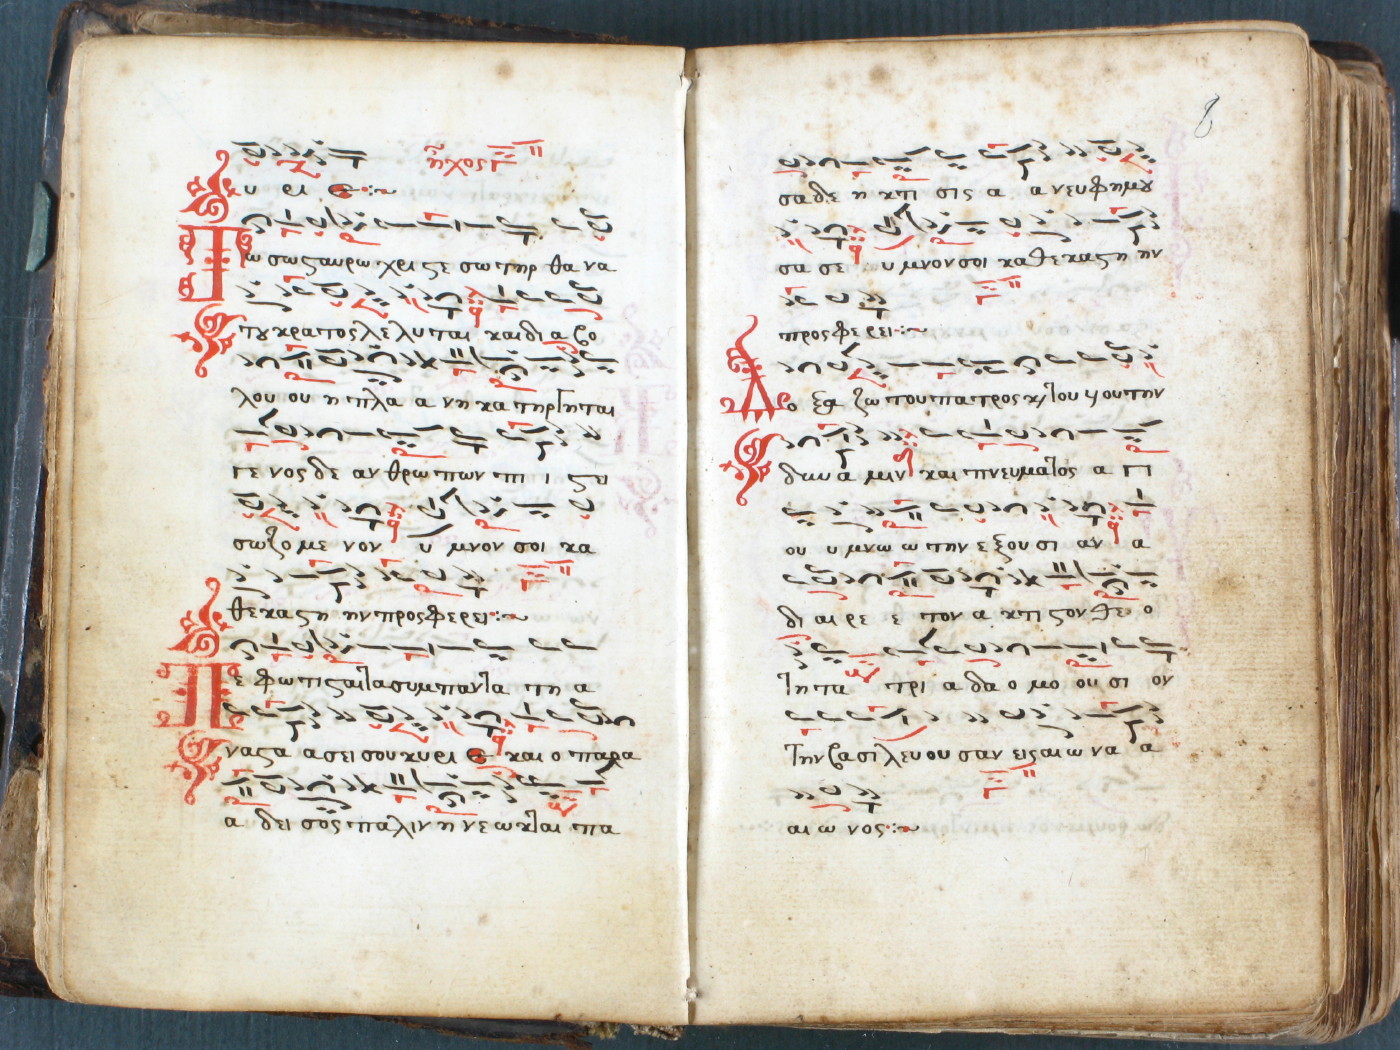 υ ρι ε :~ ἦχος
Τω σω σταυρω χρι στε σωτηρ θα να
του κρατος λελυται και δι α βο
λου ου η πλα α νη κα τηργηται
γε νος δε αν θρωπων πι ι στει
σωζο με νον υ μνον σοι κα
θεκαστη ην προσφερει :~
Πε φωτισται τα συμπαντα τη α
ναστα α σει σου κυρι ε και ο παρα
α δει σος παλιν η νεωκται πα
8
σα δε η κτι σις α α νευφημου
σα σε υ μνον σοι καθεκαστη ην
προσφερει :~
Δο ξα ζω του πατρος κ, του υιου την
δυν α μιν και πνευματος α γι
ου υ μνω ω την εξου σι αν α
δι αι ρε ε τον α κτι στον θε ο
τητα τρι α δα ο μο ου σι ον
την βασιλευ ου σαν εις αι ω να α
αι ω νος :~